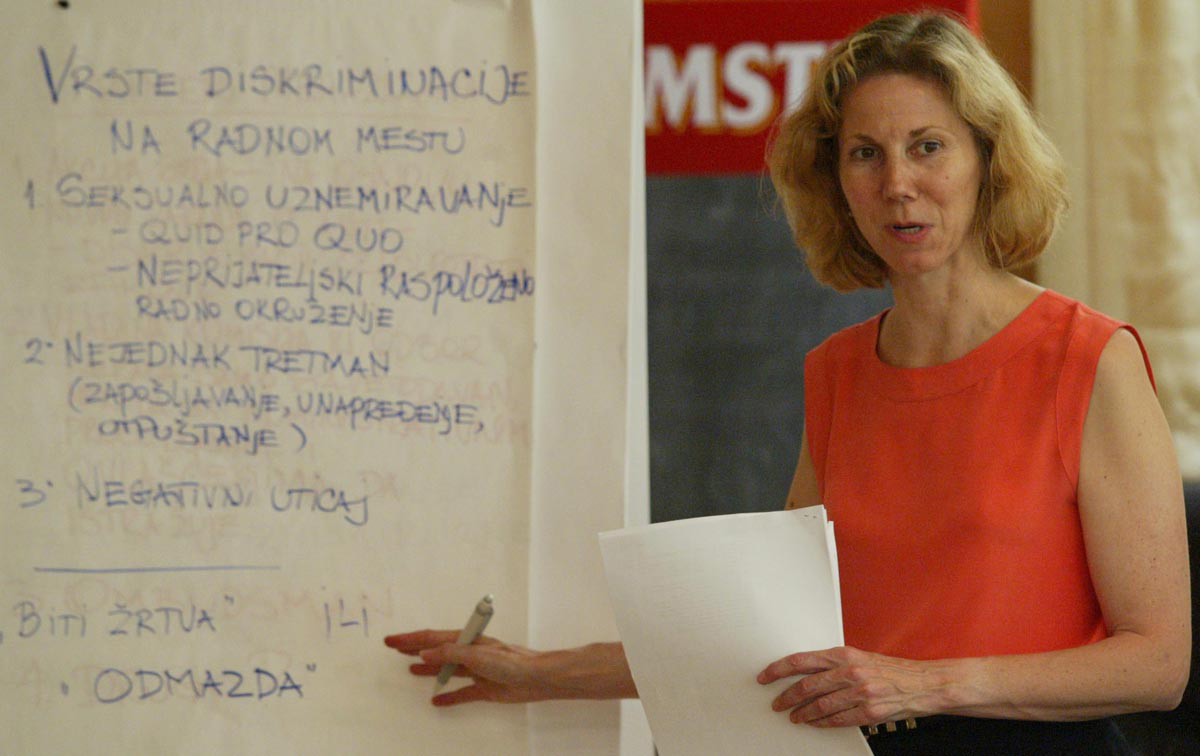 VRSTE DISKRIMINACIJE
NA RADNOM MESTU
1. SEKSUALNO UZNEMIRAVANJE
- QUID PRO QUO
- NEPRIJATELJSKI RASPOLOŽENO
RADNO OKRUŽENJE
2. NEJEDNAK TRETMAN
(ZAPOŠLJAVANJE, UNAPREĐENJE,
OTPUŠTANJE)
3. NEGATIVNI UTICAJ
„BITI ŽRTVA" ILI
„ODMAZDA"
MST